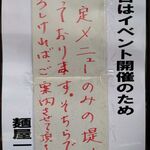 日はイベント開催のため
定メニューのみの提
っております。そちらで
ろしければ、ご案内させて頂
麺屋一